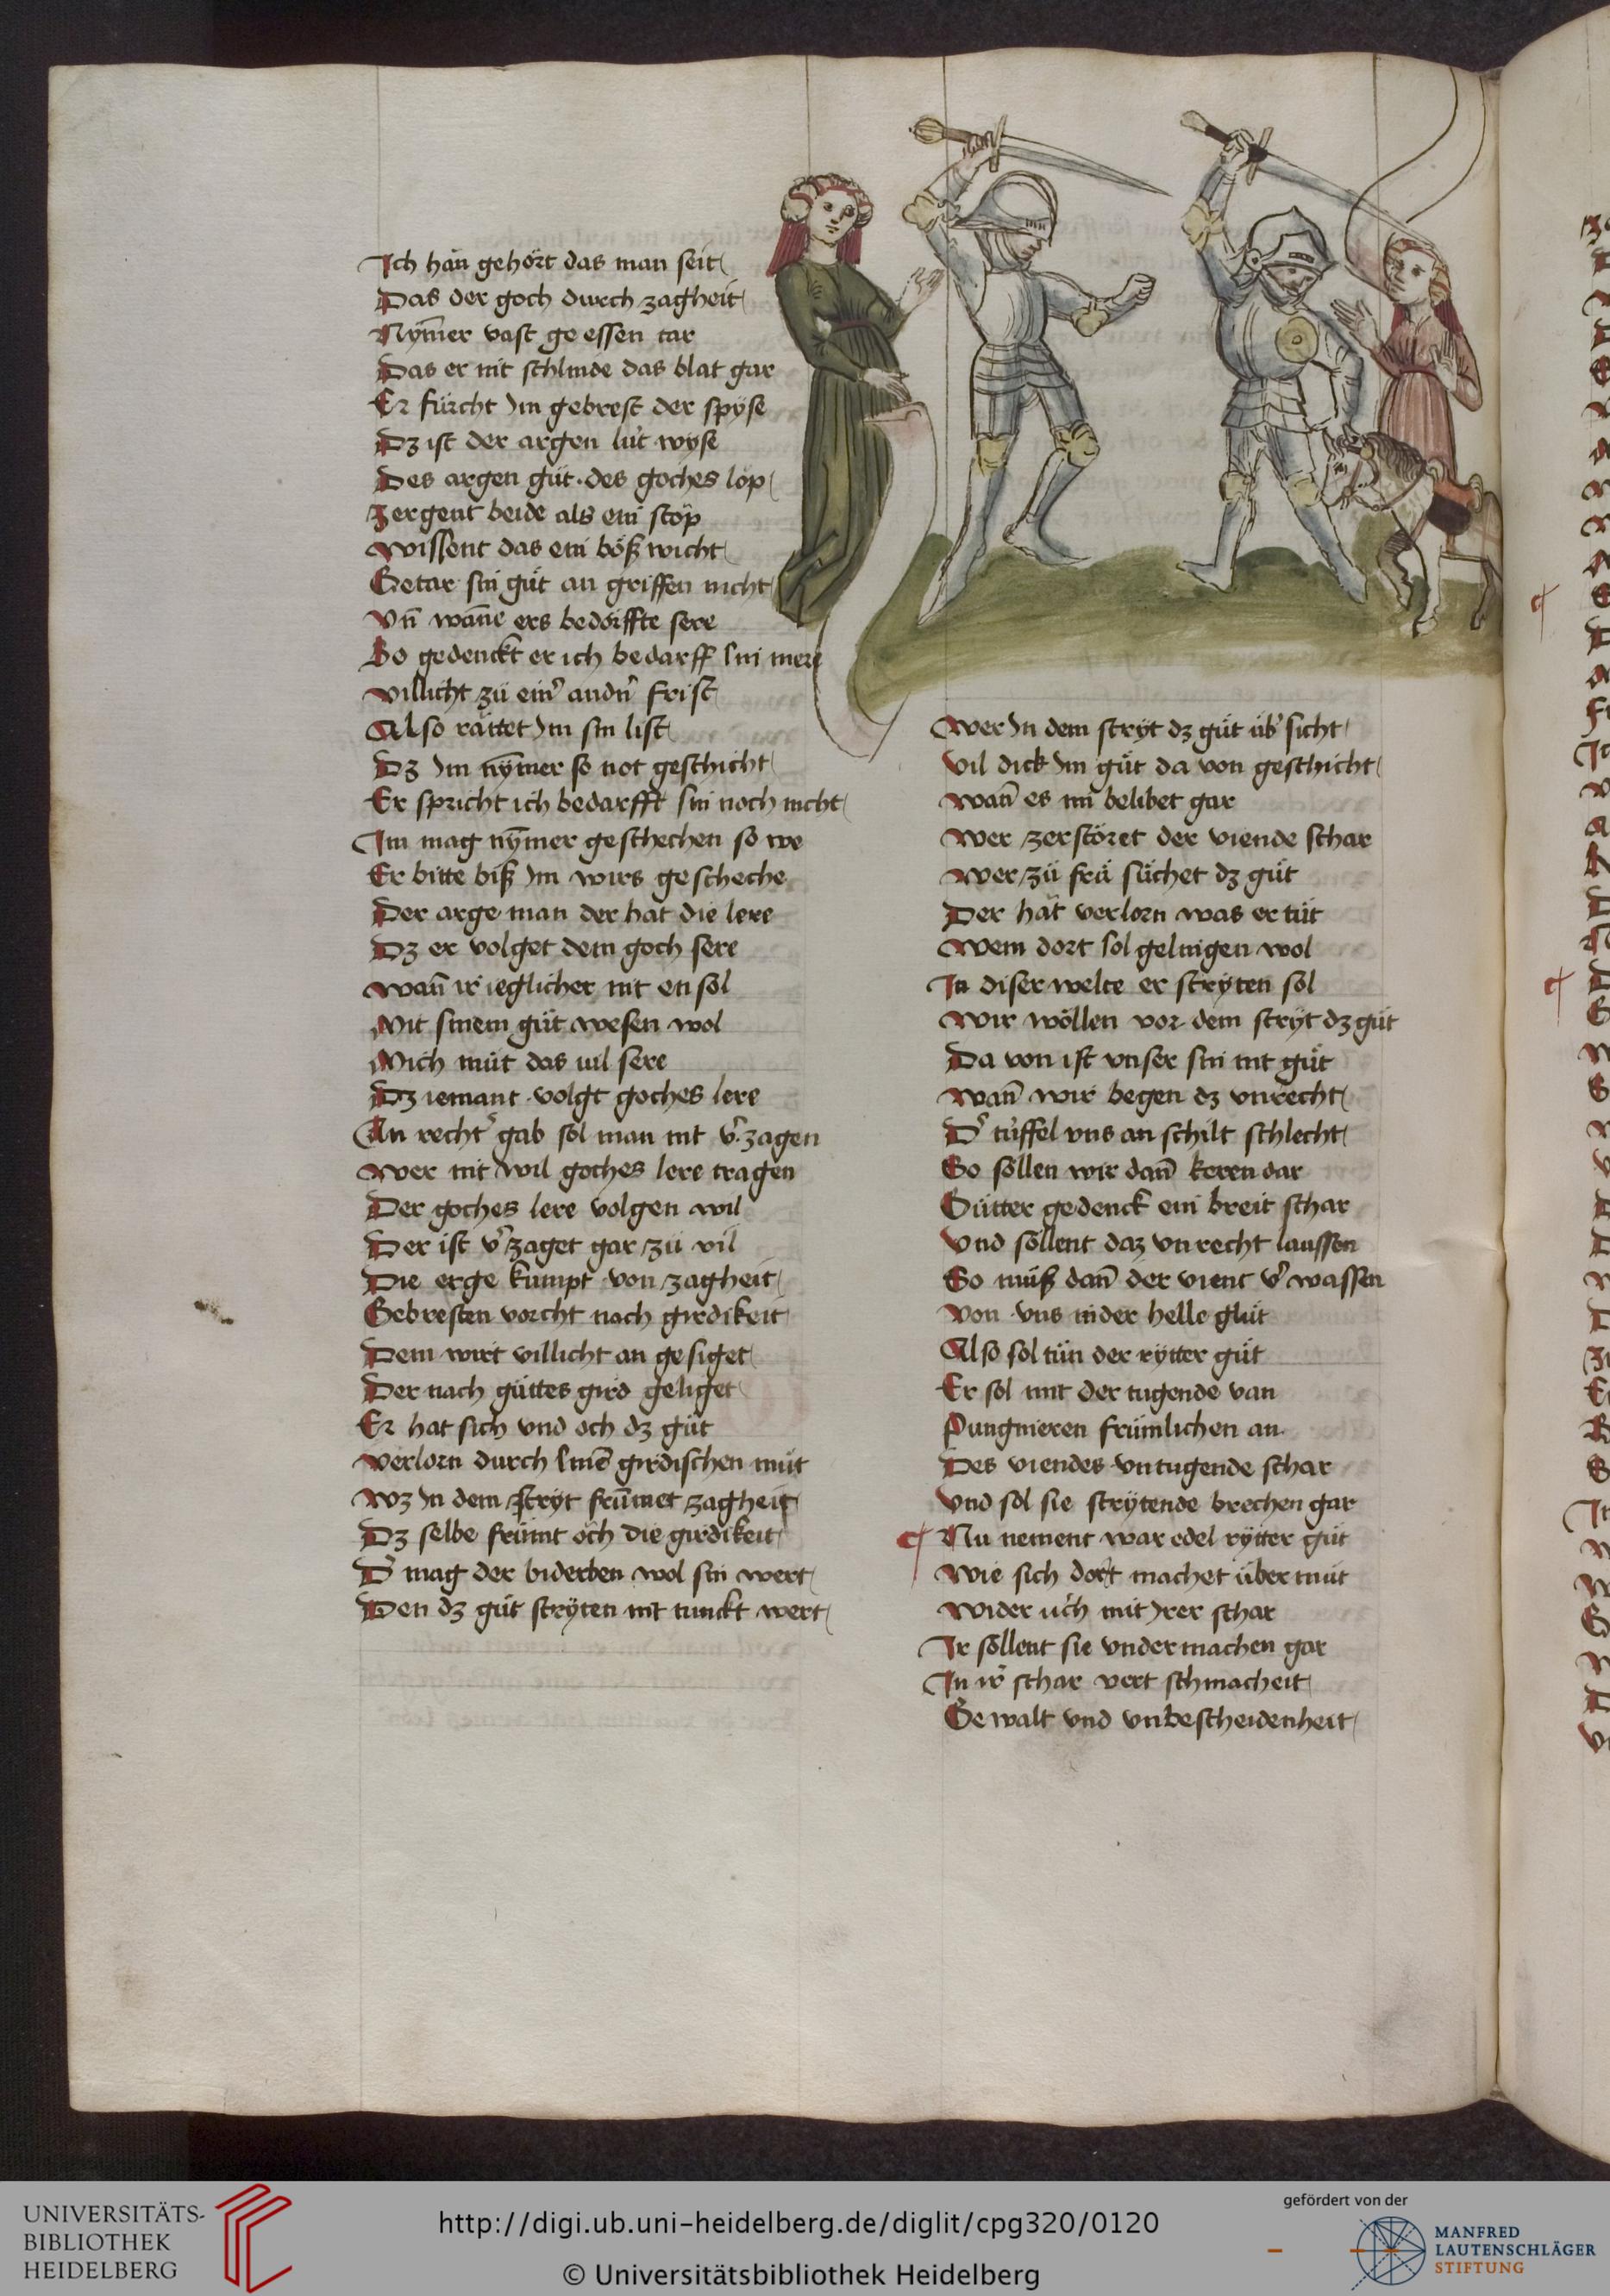 Ich han gehört das man seit
Das der goch durch zagheit
Nym̄er vast ge essen tar
Das er nit schlinde das blat gar
Er fürcht Im gebrest der spyse
Dz ist der argen lüt wyse
Des argen güt · des goches löp
Zergent beide als ein stöp
Wissent das ein böß wicht
Getar sin güt an griffen nicht
Vn̄ wan̄e ers bedörffte sere
So gedenckt er ich bedarff sin mere
Villicht zü ein᷑ andn᷑ frist
Also rättet Im sin list
Dz Im nym̄er so not geschicht
Er spricht ich bedarfft sin noch nicht
Im mag nym̄er geschechen so we
Er bitte biß Im wirs gescheche
Der arge man der hat die lere
Dz er volget dem goch sere
Wan̄ ir ieglicher nit en sol
Mit sinem güt wesen wol
Mich müt das vil sere
Dz iemant volgt goches lere
An recht᷑ gab sol man nit v᷑zagen
Wer nit wil goches lere tragen
Der goches lere volgen wil
Der ist v᷑zaget gar zü vil
Die erge kumpt von zagheit
Gebresten vorcht nach girdikeit
Dem wirt villicht an gesiget
Der nach güttes gird geliget
Er hat sich vnd och dz güt
Verlorn durch sinē girdischen müt
Wz In dem stryt frūmet zagheit
Dz selbe frümt öch die girdikeit
D᷑ mag der biderben wol sin wert
Den dz güt stryten nit tunckt wert
Wer In dem stryt dz güt üb᷑sicht
Vil dick Im güt da von geschicht
Wan̄ es im belibet gar
Wer zerstöret der viende schar
Wer zü frü süchet dz güt
Der hat verlorn was er tüt
Wem dort sol gelingen wol
In diser welte er stryten sol
Wir wöllen vor dem stryt dz güt
Da von ist vnser sin nit güt
Wan̄ wir begen dz vnrecht
D᷑ tüffel vns an schilt schlecht
So söllen wir dan̄ keren dar
Gütter gedenck ein breit schar
Vnd söllent daz vnrecht laussen
So müß dan̄ der vient v᷑wassen
Von vns in der helle glüt
Also sol tün der rytter güt
Er sol mit der tugende van
Pungnieren frümlichen an
Des viendes vntugende schar
Vnd sol sie strytende brechen gar
¶ Nu nement war edel rytter güt
Wie sich dort machet übermüt
Wider üch mit Irer schar
Ir söllent sie vndermachen gar
In ir᷑ schar vert schmacheit
Gewalt vnd vnbescheidenheit
UNIVERSITÄTS-
BIBLIOTHEK
HEIDELBERG
http://digi.ub.uni-heidelberg.de/diglit/cpg320/0120
© Universitätsbibliothek Heidelberg
gefördert von der
MANFRED
LAUTENSCHLÄGER
STIFTUNG